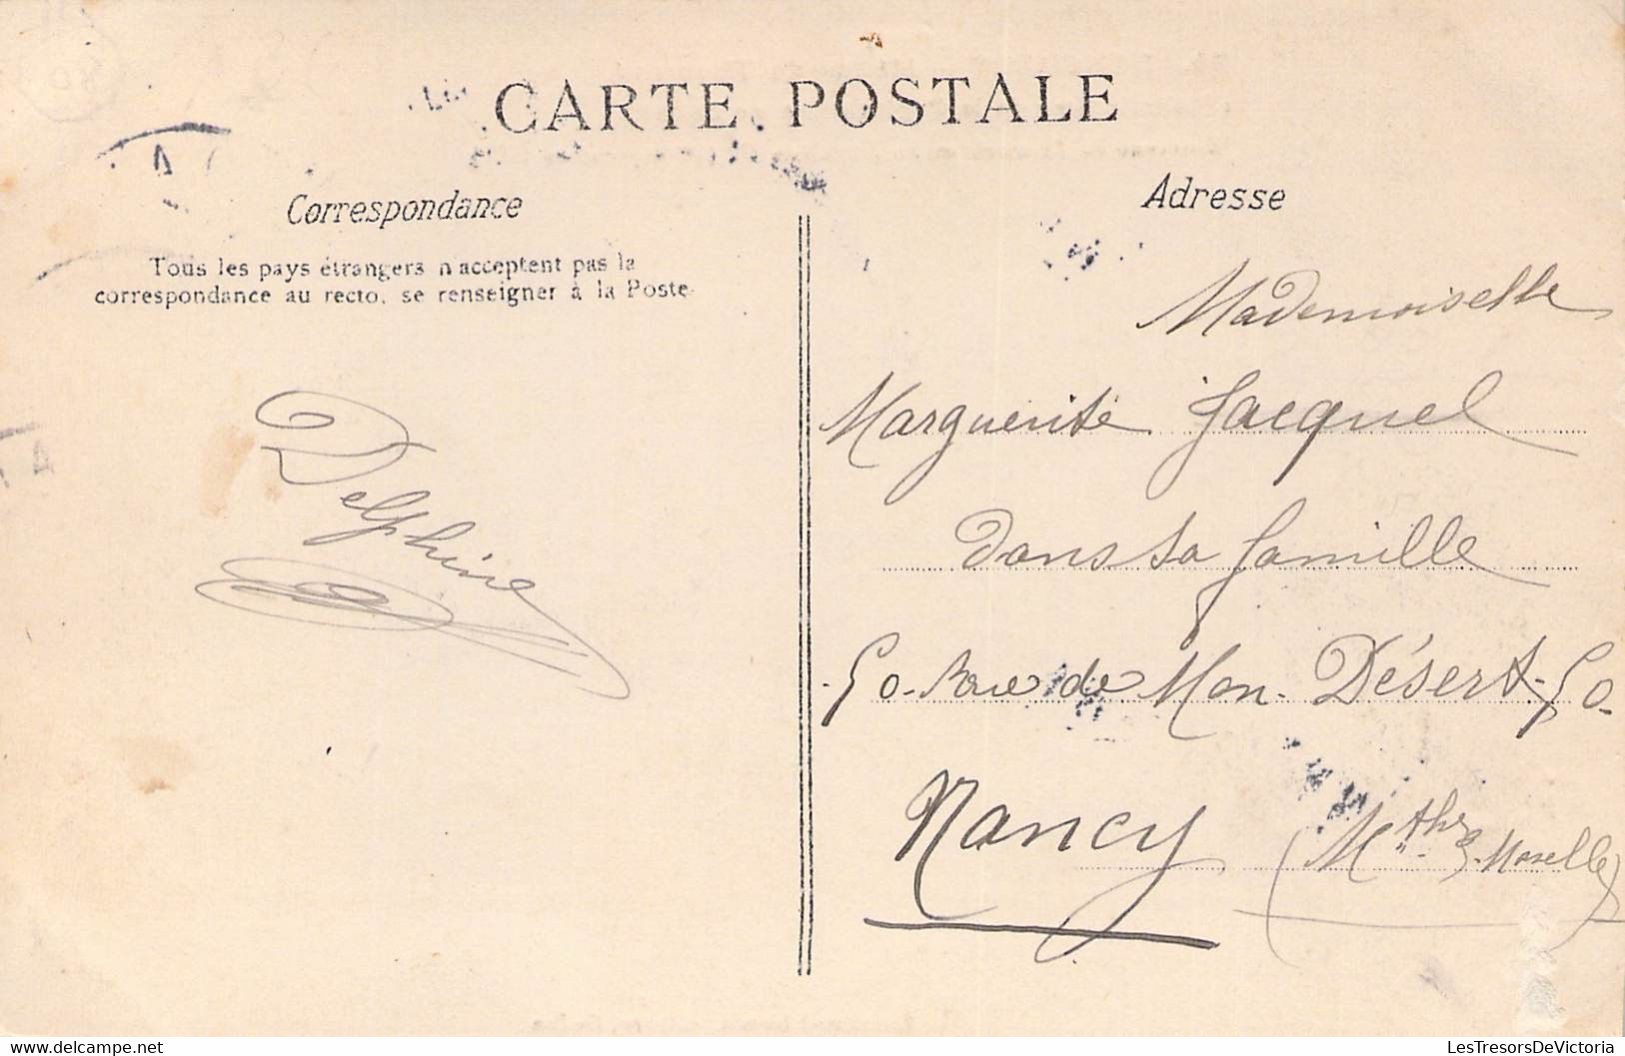 CARTE POSTALE
Correspondance
Tous les pays étrangers n'acceptent pas la
correspondance au recto, se renseigner à la Poste
Delphine
Adresse
Mademoiselle
Marguerite Jacquel
dans sa famille
50 - Rue de Mon - Désert - 50 -
Nancy (Mthe & Moselle)
LesTresorsDeVictoria